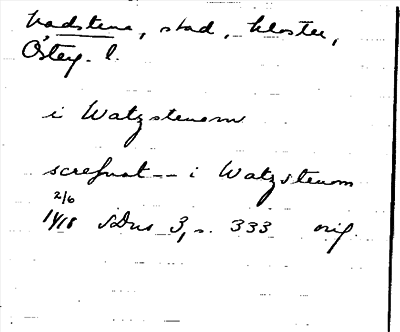 Vadstena, stad, kloster,
Österg. l.
i Watzstenom
screfwat -- i Watzstenom
2/6
1418 SDns 3, s. 333 orig.